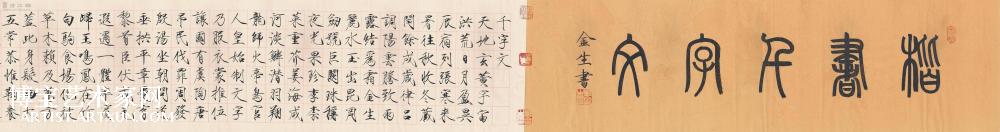 楷書千字文
金生書
千字文
天地玄黃宇宙
洪荒日月盈昃
辰宿列張寒來
暑往秋收冬藏
閏餘成歲律呂
調陽雲騰致雨
露結為霜金生
麗水玉出崑岡
劍號巨闕珠稱
夜光果珍李柰
菜重芥薑海鹹
河淡鱗潛羽翔
龍師火帝鳥官
人皇始制文字
乃服衣裳推位
讓國有虞陶唐
弔民伐罪周發
殷湯坐朝問道
垂拱平章愛育
黎首臣伏戎羌
遐邇一體
歸王鳴鳳在
白駒食場化被
草木賴及萬
蓋此身髮四大
五常恭惟鞠養
博宝艺术家网
ARTIST.ARTXUN.COM